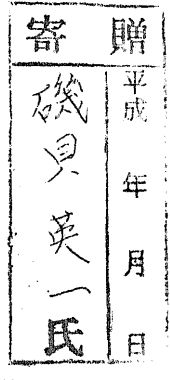 寄贈
平成　年　月　日
磯貝英一氏